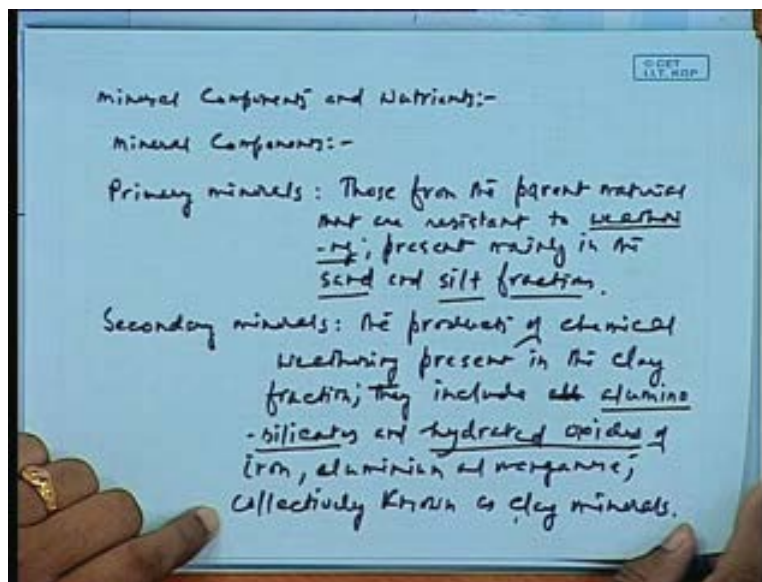 © CET
I.I.T. KGP
Mineral Components and Nutrients:-
Mineral Components:-
Primary minerals : Those from the parent material
that are resistant to weatheri
-ng; present mainly in the
sand and silt fraction.
Secondary minerals : The products of chemical
weathering present in the clay
fraction; they include alumino
-silicates and hydrated oxides of
iron, aluminium and manganese;
collectively known as clay minerals.